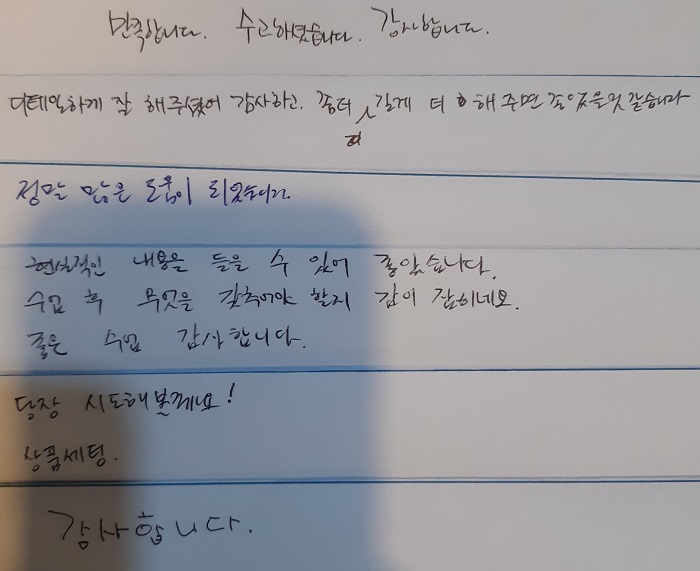 만족합니다. 수고하셨습니다. 감사합니다.
디테일하게 잘 해주셨어 감사하고. 좀더 길게 더 해주면 좋았을것 같습니다
정말 많은 도움이 되었습니다.
현실적인 내용을 들을 수 있어 좋았습니다.
수업 후 무엇을 갖추어야 할지 감이 잡히네요.
좋은 수업 감사합니다.
당장 시도해볼께요!
상품세팅.
감사합니다.